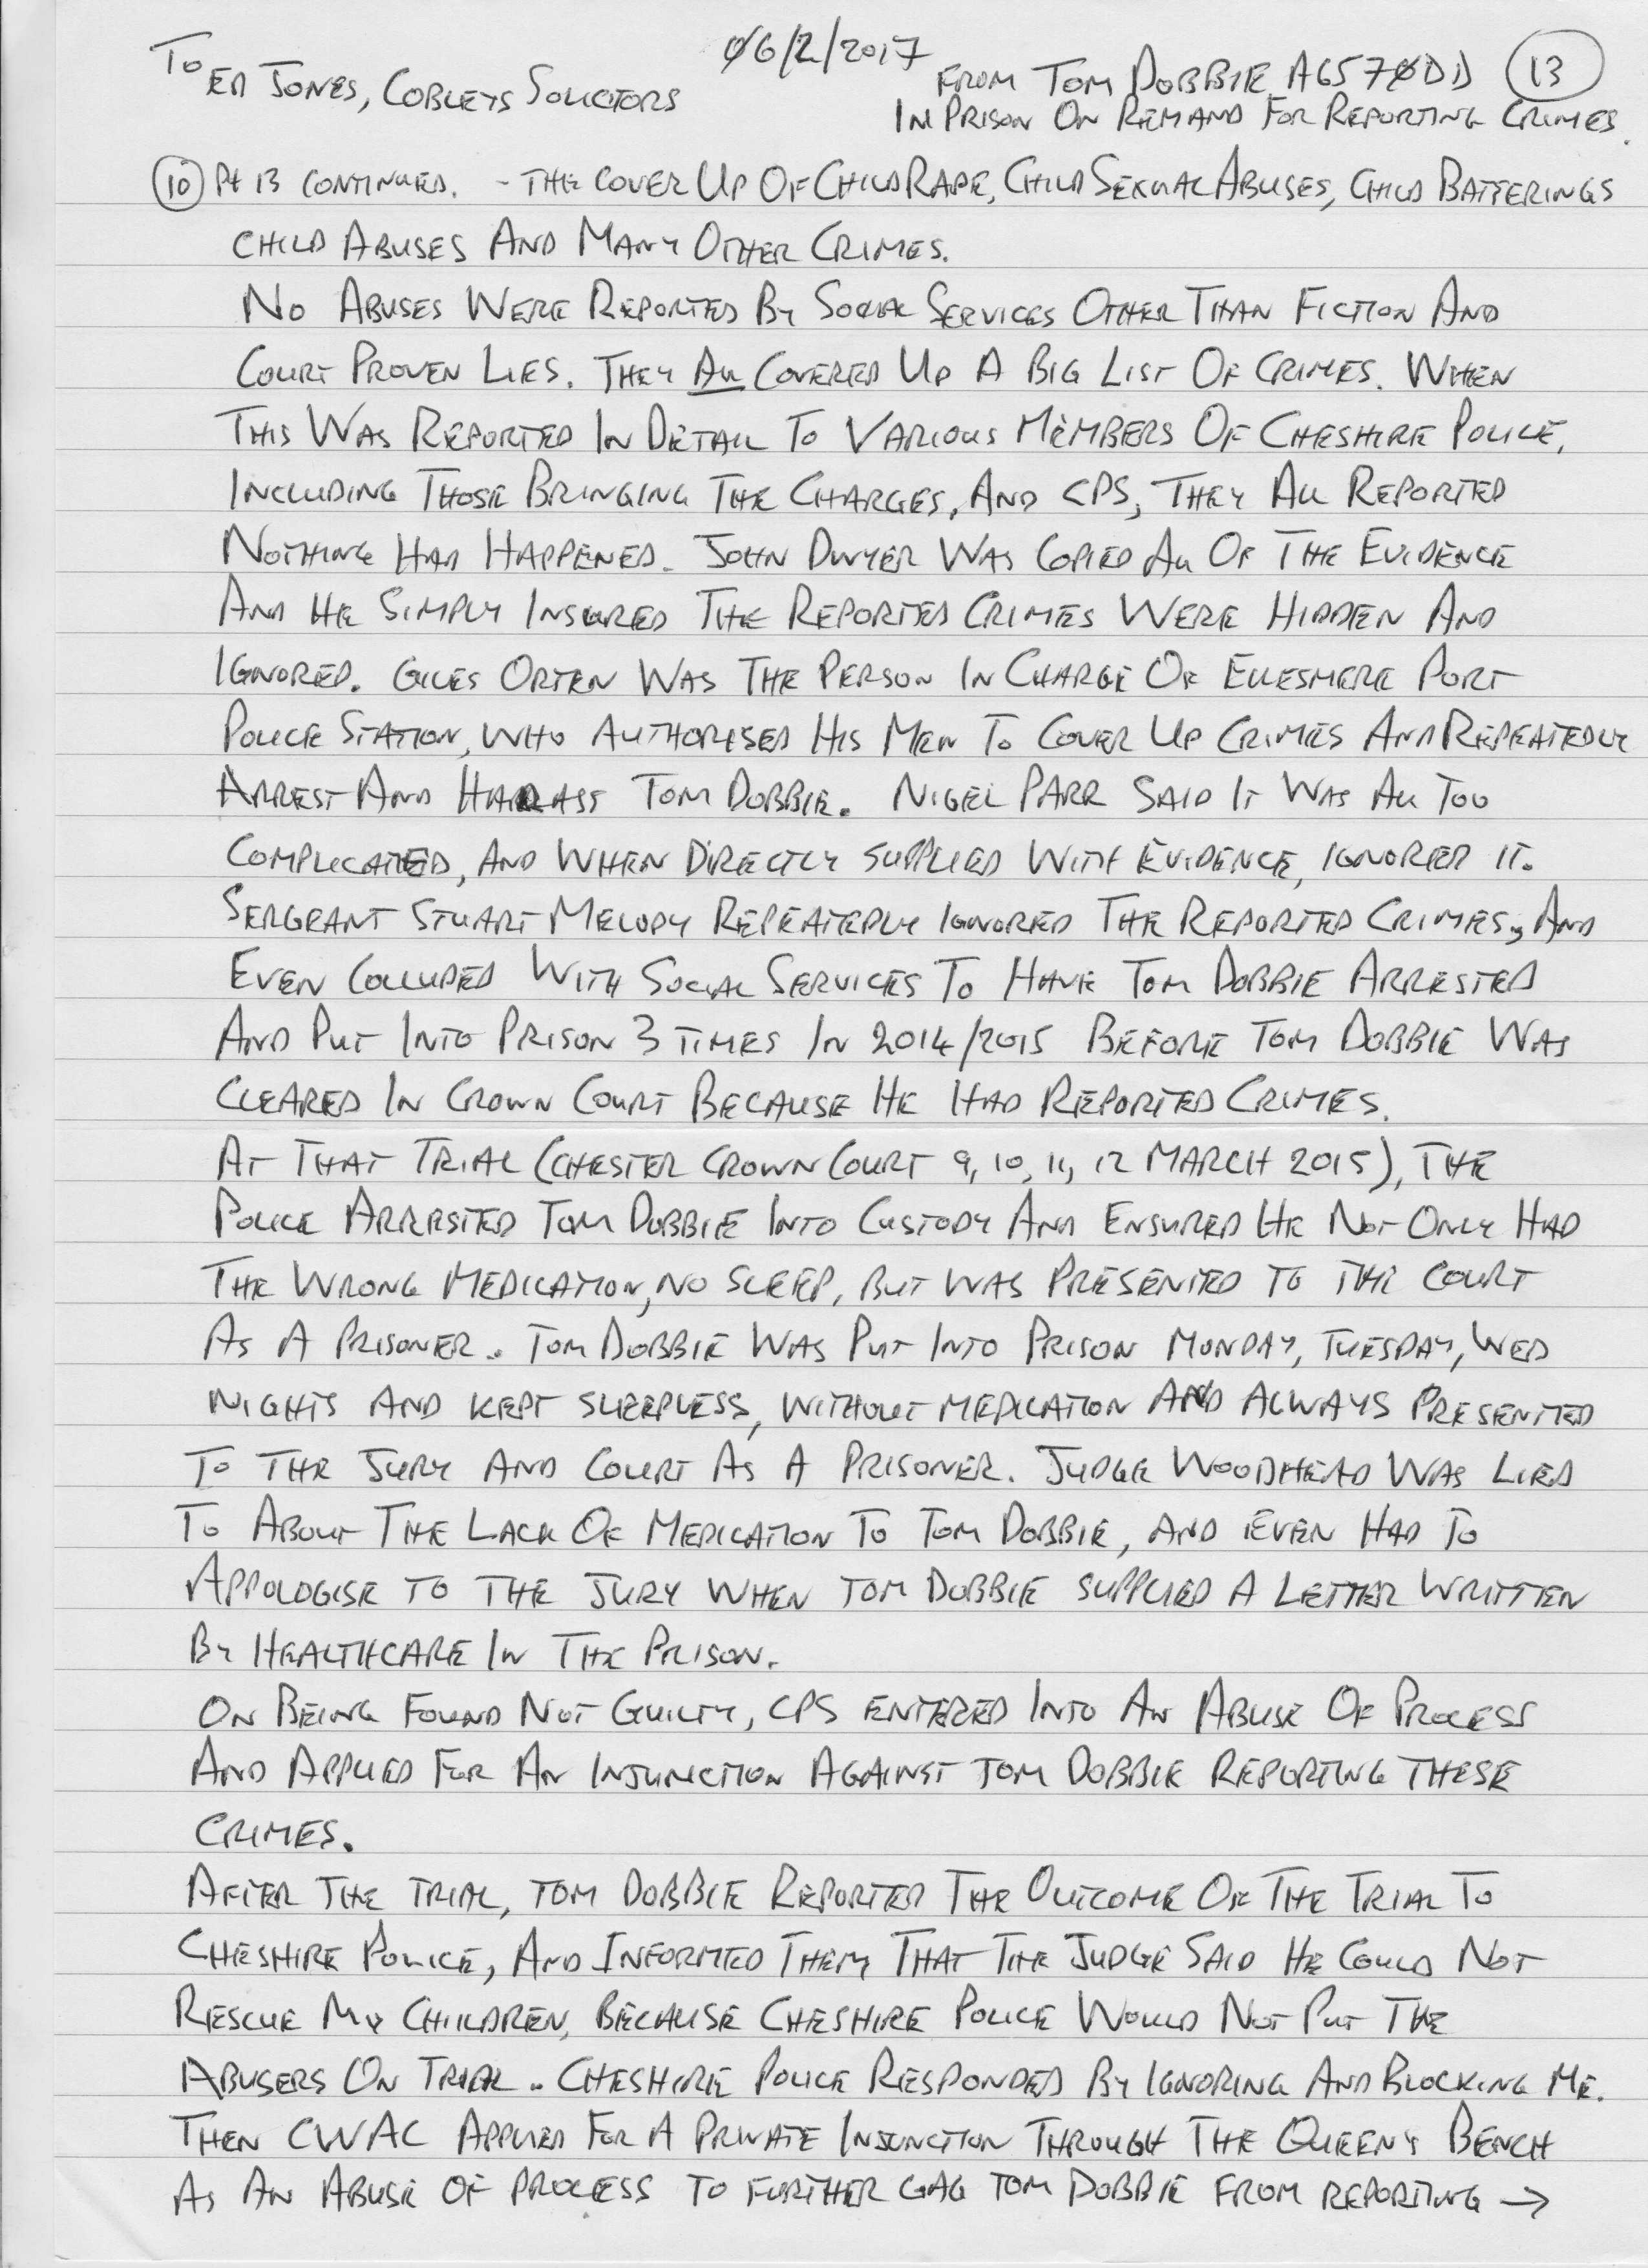 TO ED JONES, COBLEYS SOLICITORS
06/2/2017
FROM TOM DOBBIE A6570DD (13)
IN PRISON ON REMAND FOR REPORTING CRIMES.
(10) Pt 13 CONTINUED. - THE COVER UP OF CHILD RAPE, CHILD SEXUAL ABUSES, CHILD BATTERINGS
CHILD ABUSES AND MANY OTHER CRIMES.
NO ABUSES WERE REPORTED BY SOCIAL SERVICES OTHER THAN FICTION AND
COURT PROVEN LIES. THEY ALL COVERED UP A BIG LIST OF CRIMES. WHEN
THIS WAS REPORTED IN DETAIL TO VARIOUS MEMBERS OF CHESHIRE POLICE,
INCLUDING THOSE BRINGING THE CHARGES, AND CPS, THEY ALL REPORTED
NOTHING HAD HAPPENED. JOHN DWYER WAS COPIED ALL OF THE EVIDENCE
AND HE SIMPLY INSURED THE REPORTED CRIMES WERE HIDDEN AND
IGNORED. GILES ORTEN WAS THE PERSON IN CHARGE OF ELLESMERE PORT
POLICE STATION, WHO AUTHORISED HIS MEN TO COVER UP CRIMES AND REPEATEDLY
ARREST AND HARASS TOM DOBBIE. NIGEL PARR SAID IT WAS ALL TOO
COMPLICATED, AND WHEN DIRECTLY SUPPLIED WITH EVIDENCE, IGNORED IT.
SERGEANT STUART MELODY REPEATEDLY IGNORED THE REPORTED CRIMES, AND
EVEN COLLUDED WITH SOCIAL SERVICES TO HAVE TOM DOBBIE ARRESTED
AND PUT INTO PRISON 3 TIMES IN 2014/2015 BEFORE TOM DOBBIE WAS
CLEARED IN CROWN COURT BECAUSE HE HAD REPORTED CRIMES.
AT THAT TRIAL (CHESTER CROWN COURT 9, 10, 11, 12 MARCH 2015), THE
POLICE ARRESTED TOM DOBBIE INTO CUSTODY AND ENSURED HE NOT ONLY HAD
THE WRONG MEDICATION, NO SLEEP, BUT WAS PRESENTED TO THE COURT
AS A PRISONER. TOM DOBBIE WAS PUT INTO PRISON MONDAY, TUESDAY, WED
NIGHTS AND KEPT SLEEPLESS, WITHOUT MEDICATION AND ALWAYS PRESENTED
TO THE JURY AND COURT AS A PRISONER. JUDGE WOODHEAD WAS LIED
TO ABOUT THE LACK OF MEDICATION TO TOM DOBBIE, AND EVEN HAD TO
APPOLOGISE TO THE JURY WHEN TOM DOBBIE SUPPLIED A LETTER WRITTEN
BY HEALTHCARE IN THE PRISON.
ON BEING FOUND NOT GUILTY, CPS ENTERED INTO AN ABUSE OF PROCESS
AND APPLIED FOR AN INJUNCTION AGAINST TOM DOBBIE REPORTING THESE
CRIMES.
AFTER THE TRIAL, TOM DOBBIE REPORTED THE OUTCOME OF THE TRIAL TO
CHESHIRE POLICE, AND INFORMED THEM THAT THE JUDGE SAID HE COULD NOT
RESCUE MY CHILDREN, BECAUSE CHESHIRE POLICE WOULD NOT PUT THE
ABUSERS ON TRIAL. CHESHIRE POLICE RESPONDED BY IGNORING AND BLOCKING ME.
THEN CWAC APPLIED FOR A PRIVATE INJUNCTION THROUGH THE QUEEN'S BENCH
AS AN ABUSE OF PROCESS TO FURTHER GAG TOM DOBBIE FROM REPORTING →